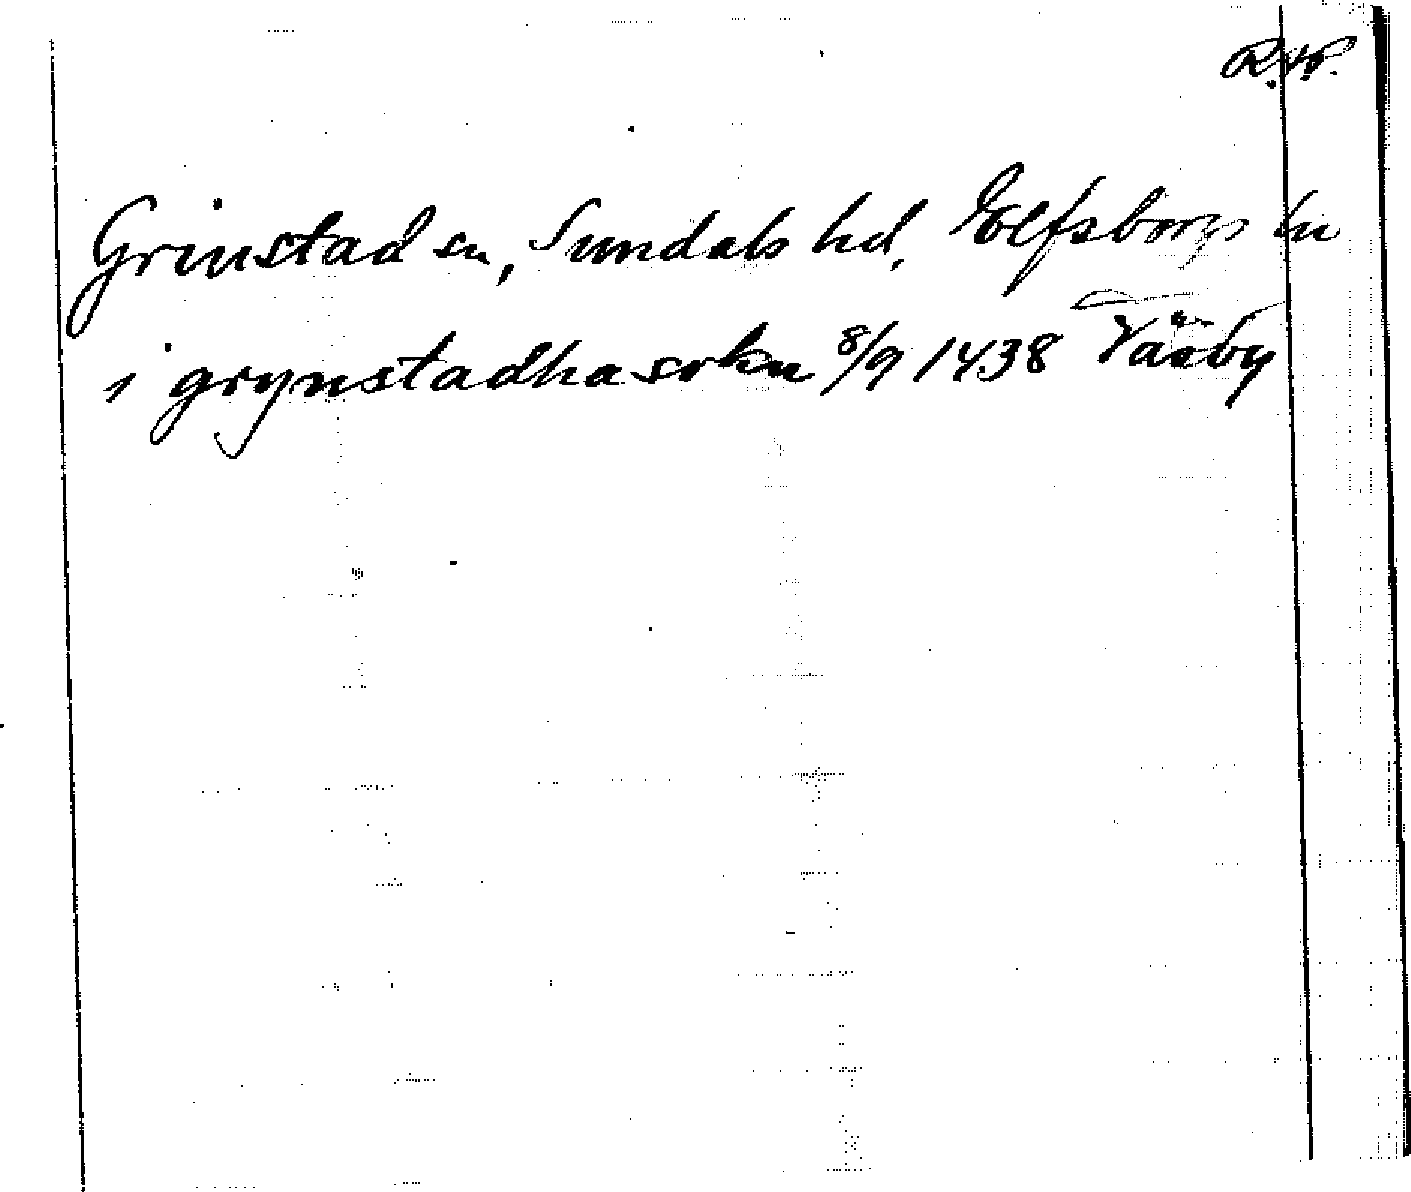 R.A.P.
Grinstad sn, Sundals hd, Elfsborgs ln
i grynstadha sokn 8/9 1438 Väsby